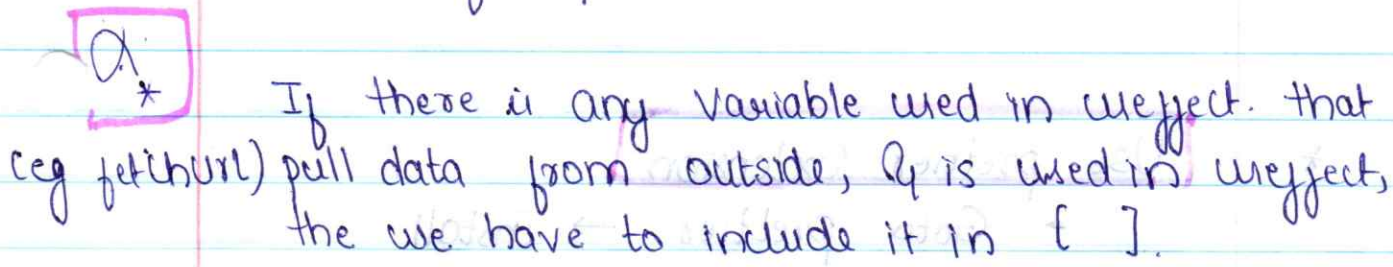 Q.
*
If there is any variable used in useffect. that
(eg fetchurl) pull data from outside, & is used in useffect,
the we have to include it in [ ].